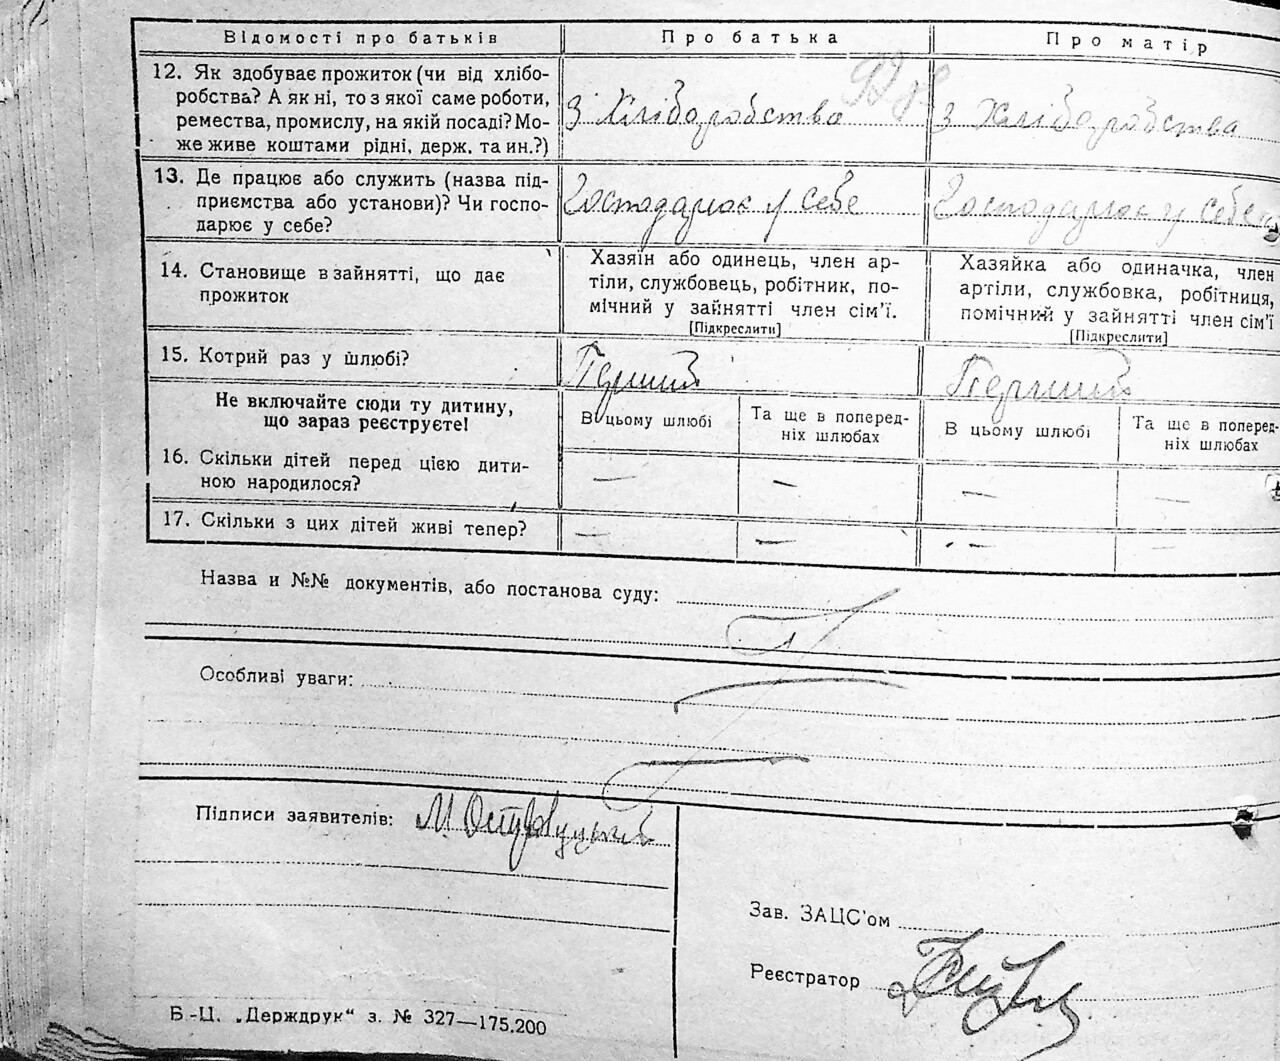 Відомості про батьків
Про батька
Про матір
12. Як здобуває прожиток (чи від хлібо-
робства? А як ні, то з якої саме роботи,
ремества, промислу, на якій посаді? Мо-
же живе коштами рідні, держ. та ин.?)
З Хліборобства
З Хліборобства
13. Де працює або служить (назва під-
приємства або установи)? Чи госпо-
дарює у себе?
Господарює у себе
Господарює у себе
14. Становище в зайнятті, що дає
прожиток
Хазяїн або одинець, член ар-
тіли, службовець, робітник, по-
мічний у зайнятті член сім’ї.
[Підкреслити]
Хазяйка або одиначка, член
артіли, службовка, робітниця,
помічний у зайнятті член сім’ї
[Підкреслити]
15. Котрий раз у шлюбі?
Перший
Перший
Не включайте сюди ту дитину,
що зараз реєструєте!
В цьому шлюбі
Та ще в поперед-
ніх шлюбах
В цьому шлюбі
Та ще в поперед-
ніх шлюбах
16. Скільки дітей перед цією дити-
ною народилося?
— — — —
17. Скільки з цих дітей живі тепер?
— — — —
Назва и №№ документів, або постанова суду:
Особливі уваги:
Підписи заявителів:
Зав. ЗАЦС’ом
Реєстратор
Б-Ц. „Держдрук“ з. № 327—175.200